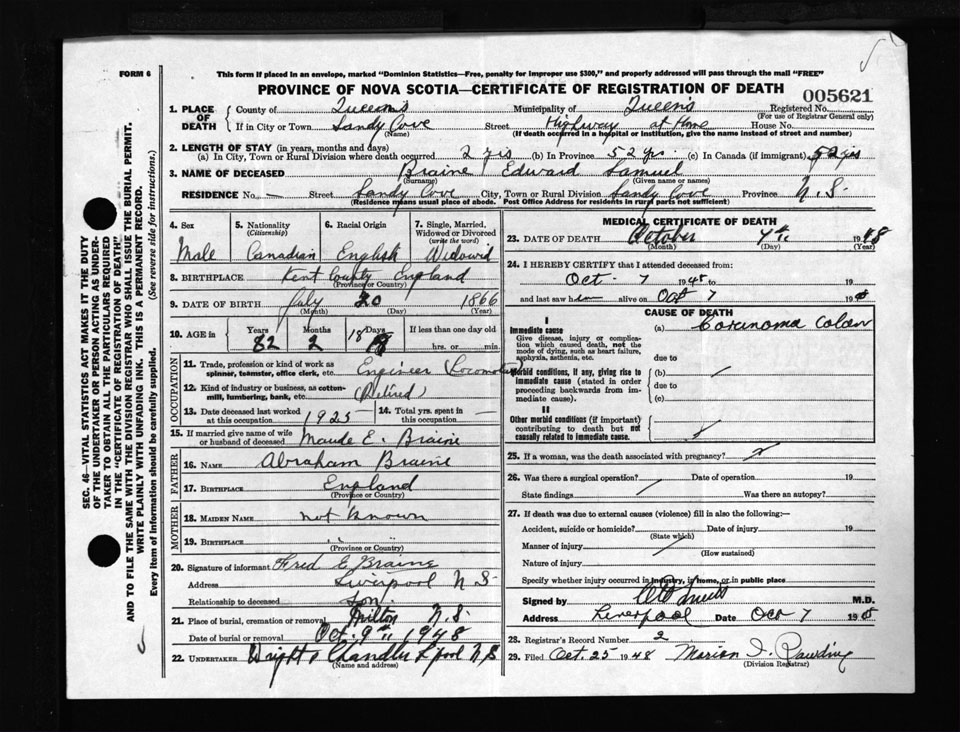 FORM 6
This form if placed in an envelope, marked "Dominion Statistics—Free, penalty for improper use $300," and properly addressed will pass through the mail "FREE"
PROVINCE OF NOVA SCOTIA—CERTIFICATE OF REGISTRATION OF DEATH
005621
1. PLACE OF DEATH
County of Queens Municipality of Queens Registered No.
(For use of Registrar General only)
If in City or Town Sandy Cove Street Highway at Home House No.
(Name) (If death occurred in a hospital or institution, give the name instead of street and number)
2. LENGTH OF STAY (in years, months and days)
(a) In City, Town or Rural Division where death occurred 2 yrs (b) In Province 52 yrs. (c) In Canada (if immigrant) 52 yrs
3. NAME OF DECEASED Braine Edward Samuel
(Surname) (Given name or names)
RESIDENCE No. — Street Sandy Cove City, Town or Rural Division Sandy Cove Province N.S.
(Residence means usual place of abode. Post Office Address for residents in rural parts not sufficient)
4. Sex Male
5. Nationality (Citizenship) Canadian
6. Racial Origin English
7. Single, Married, Widowed or Divorced (write the word) Widowed
8. BIRTHPLACE Kent County England
(Province or Country)
9. DATE OF BIRTH July 20 1866
(Month) (Day) (Year)
10. AGE in Years Months Days If less than one day old
82 2 18 hrs. or min.
OCCUPATION
11. Trade, profession or kind of work as spinner, teamster, office clerk, etc. Engineer
12. Kind of industry or business, as cotton-mill, lumbering, bank, etc. (Retired)
13. Date deceased last worked at this occupation 1925
14. Total yrs. spent in this occupation —
15. If married give name of wife or husband of deceased Maude E. Braine
FATHER
16. NAME Abraham Braine
17. BIRTHPLACE England
(Province or Country)
MOTHER
18. MAIDEN NAME not known
19. BIRTHPLACE " "
(Province or Country)
20. Signature of informant Fred E Braine
Address Liverpool N S
Relationship to deceased Son
21. Place of burial, cremation or removal Milton N.S.
Date of burial or removal Oct. 9th 1948
22. UNDERTAKER Chandler L'pool N S
(Name and address)
MEDICAL CERTIFICATE OF DEATH
23. DATE OF DEATH October 7th 1948
(Month) (Day) (Year)
24. I HEREBY CERTIFY that I attended deceased from:
Oct - 7 1948 to 19
and last saw him alive on Oct 7 19
CAUSE OF DEATH
I
Immediate cause
Give disease, injury or complication which caused death, not the mode of dying, such as heart failure, asphyxia, asthenia, etc.
(a) Colon
due to
Morbid conditions, if any, giving rise to immediate cause (stated in order proceeding backwards from immediate cause).
(b)
due to
(c)
II
Other morbid conditions (if important) contributing to death but not causally related to immediate cause.
25. If a woman, was the death associated with pregnancy?
26. Was there a surgical operation? Date of operation 19
State findings Was there an autopsy?
27. If death was due to external causes (violence) fill in also the following:—
Accident, suicide or homicide? Date of injury 19
(State which)
Manner of injury
(How sustained)
Nature of injury
Specify whether injury occurred in industry, in home, or in public place
Signed by M.D.
Address Liverpool Date Oct 7 19
28. Registrar's Record Number 2
29. Filed Oct. 25 1948 Marion I.
(Division Registrar)
SEC. 46—VITAL STATISTICS ACT MAKES IT THE DUTY
OF THE UNDERTAKER OR PERSON ACTING AS UNDER-
TAKER TO OBTAIN ALL THE PARTICULARS REQUIRED
IN THE "CERTIFICATE OF REGISTRATION OF DEATH"
AND TO FILE THE SAME WITH THE DIVISION REGISTRAR WHO SHALL ISSUE THE BURIAL PERMIT.
WRITE PLAINLY WITH UNFADING INK. THIS IS A PERMANENT RECORD.
Every item of information should be carefully supplied. (See reverse side for instructions.)